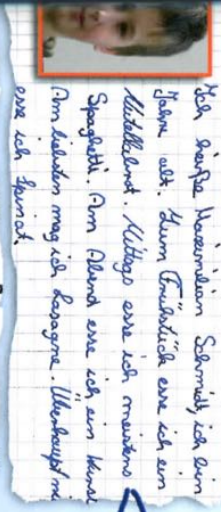 Ich heiße Maximilian Schmidt, ich bin
Jahre alt. Zum Frühstück esse ich ein
Mittags esse ich meistens
Spaghetti. Am Abend esse ich ein
Am liebsten mag ich Lasagne. Überhaupt ni
esse ich Spinat.